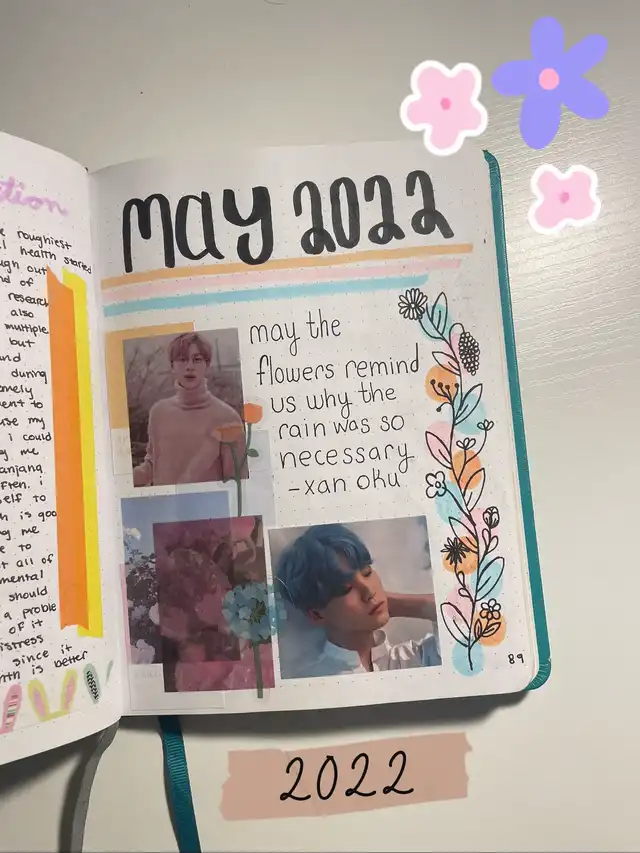 tion
roughiest
health started
ugh out
nd of
research
also
multiple
but
und
during
ent to
use my
i could
me
anjang
ften. i
self to
h is good
ng me
e to
t all of
mental
should
a proble
of it
istress
since it
nth is better
may 2022
may the
flowers remind
us why the
rain was so
necessary
-xan oku
89
2022